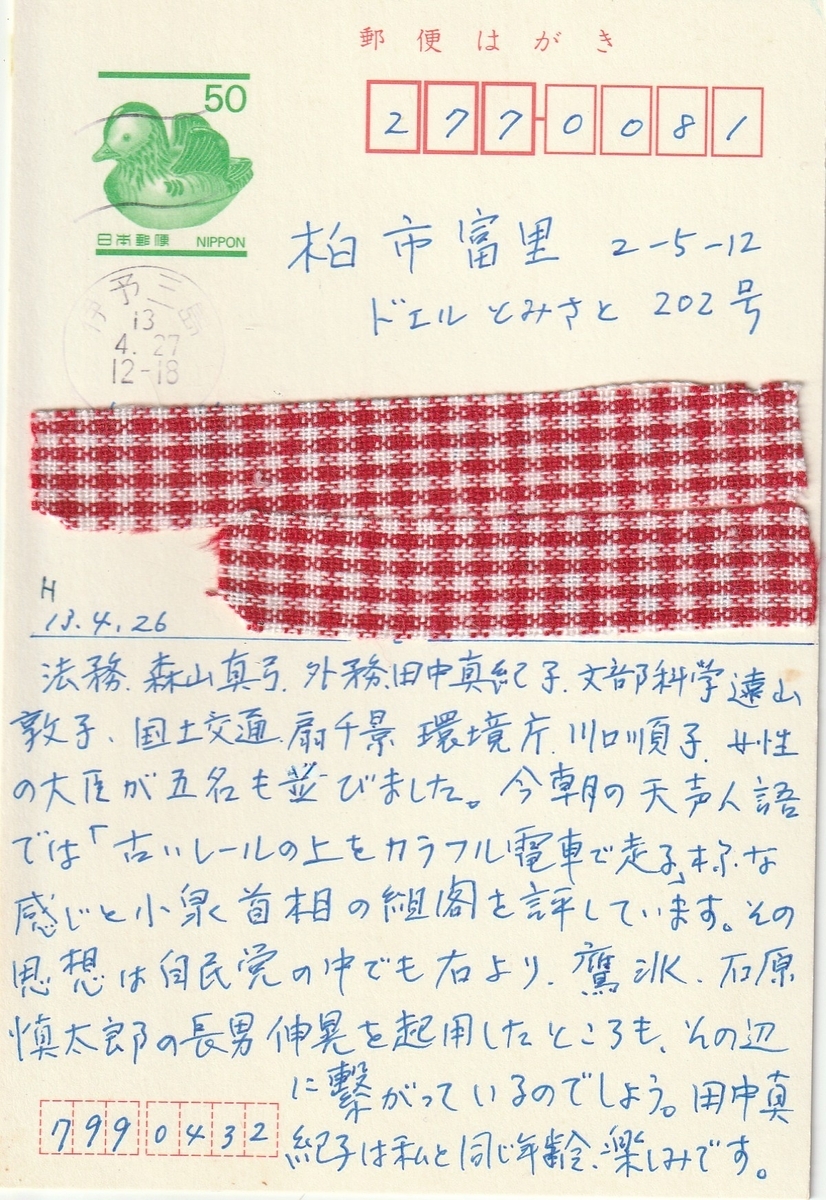 郵便はがき
50
日本郵便 NIPPON
277-0081
柏市富里 2-5-12
ドエルとみさと 202号
伊予三島
13
4.27
12-18
H
13.4.26
法務.森山真弓.外務.田中真紀子.文部科学遠山
敦子、国土交通.扇千景 環境庁.川口順子.女性
の大臣が五名も並びました。今朝の天声人語
では「古いレールの上をカラフル電車で走る」様な
感じと小泉首相の組閣を評しています。その
思想は自民党の中でも右より、鷹派、石原
慎太郎の長男伸晃を起用したところも、その辺
に繋がっているのでしょう。田中真
紀子は私と同じ年齢、楽しみです。
7990432